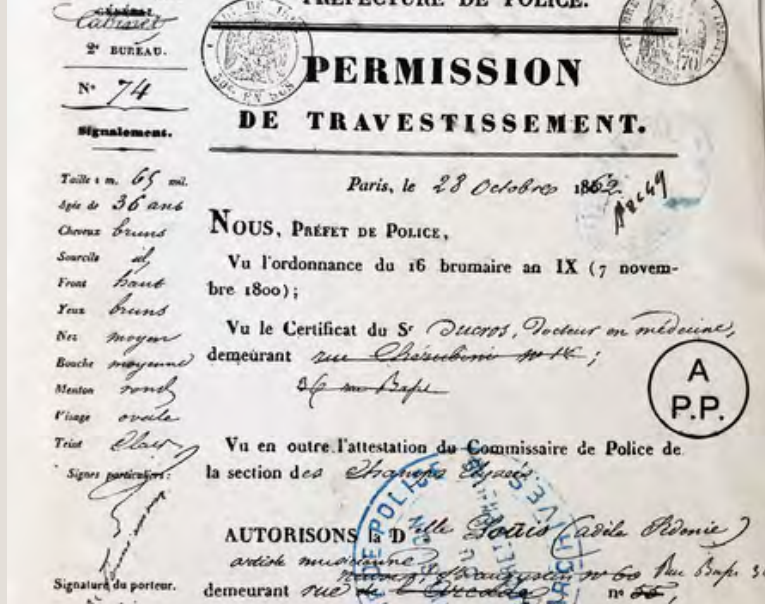 PRÉFECTURE DE POLICE.
GÉNÉRAL
Cabinet
2e BUREAU.
N° 74
Signalement.
Taille 1 m. 65 mil.
Agée de 36 ans
Cheveux bruns
Sourcils id
Front haut
Yeux bruns
Nez moyen
Bouche moyenne
Menton rond
Visage ovale
Teint clair
Signes particuliers :
Signature du porteur.
PERMISSION
DE TRAVESTISSEMENT.
Paris, le 28 Octobre 1862.
NOUS, PRÉFET DE POLICE,
Vu l'ordonnance du 16 brumaire an IX (7 novem-
bre 1800);
Vu le Certificat du Sr Ducros, Docteur en médecine,
demeurant rue Chérubini n° ;
36 rue
Vu en outre l'attestation du Commissaire de Police de
la section des Champs Elysées
AUTORISONS la Dlle Louis (adèle Sidonie)
artiste musicienne
n° 60 Rue
demeurant rue de n° 55,
A
P.P.
DE POLICE